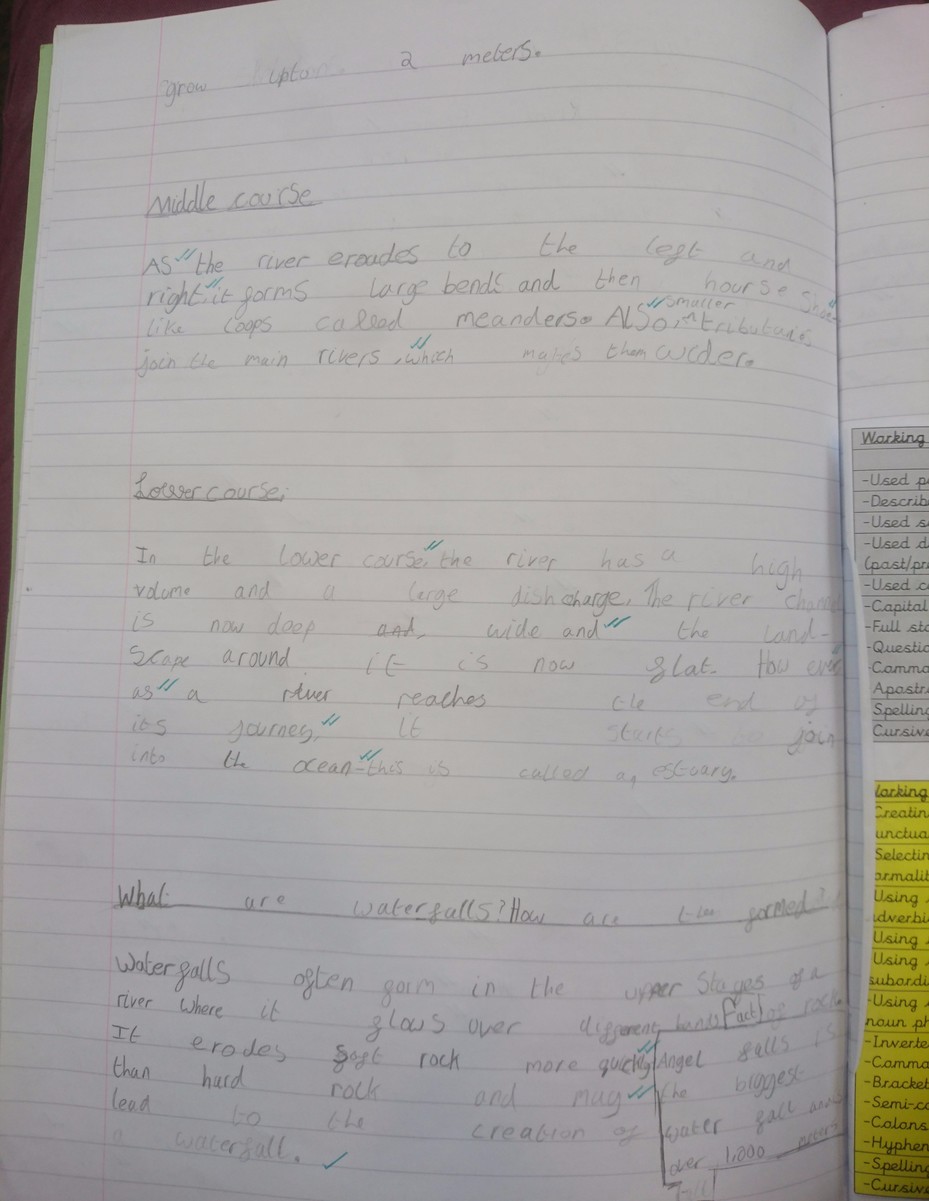 grow upto 2 meters.
Middle course
As the river eroudes to the left and
right, it forms large bends and then hourse shoe
like loops called meanders. Also, smaller tributaries
join the main rivers, which makes them wider.
Lower course:
In the lower course, the river has a high
volume and a large dishcharge, The river channel
is now deep and, wide and the land-
scape around it is now flat. How ever
as a river reaches the end of
its journey, it starts to join
into the ocean-this is called a estuary.
What are waterfalls? How are the formed?
Waterfalls often form in the upper stages of a
river where it flows over different bands of rock.
It erodes soft rock more quickly
than hard rock and may
lead to the creation of
a waterfall.
Fact!
Angel falls is
the biggest
water fall and
over 1,000 meters
Tall
Working
-Used
-Describ
-Used
-Used
(past/pr
-Used
-Capital
-Full sto
-Questio
-Comma
Apostr
Spelling
Cursive
Working
Creatin
unctua
Selectin
ormalit
Using
adverbi
Using
Using
subordi
-Using
noun ph
-Inverte
-Comma
-Bracket
-Semi-co
-Colons
-Hyphen
-Spelling
-Cursive